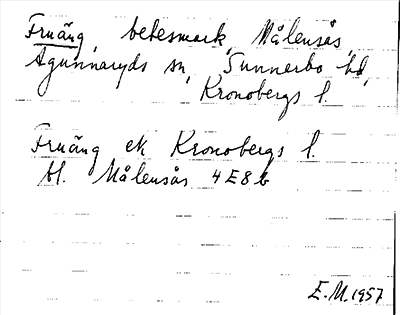 Fruäng, betesmark, Målensås,
Agunnaryds sn, Sunnerbo hd,
Kronobergs l.
Fruäng ek Kronobergs l.
bl. Målensås 4E8b
E.M. 1957